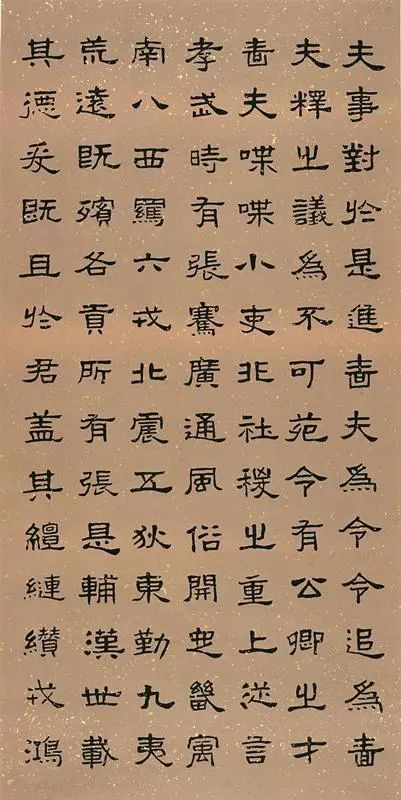 夫事對於是進嗇夫為令令退為嗇
夫釋之議為不可苑令有公卿之才
嗇夫喋喋小吏非社稷之重上從言
孝武時有張騫廣通風俗開定畿寓
南八西羈六戎北震五狄東勤九夷
荒遠既殯各貢所有張是輔漢世載
其德爰既且於君盖其繵縺纘戎鴻